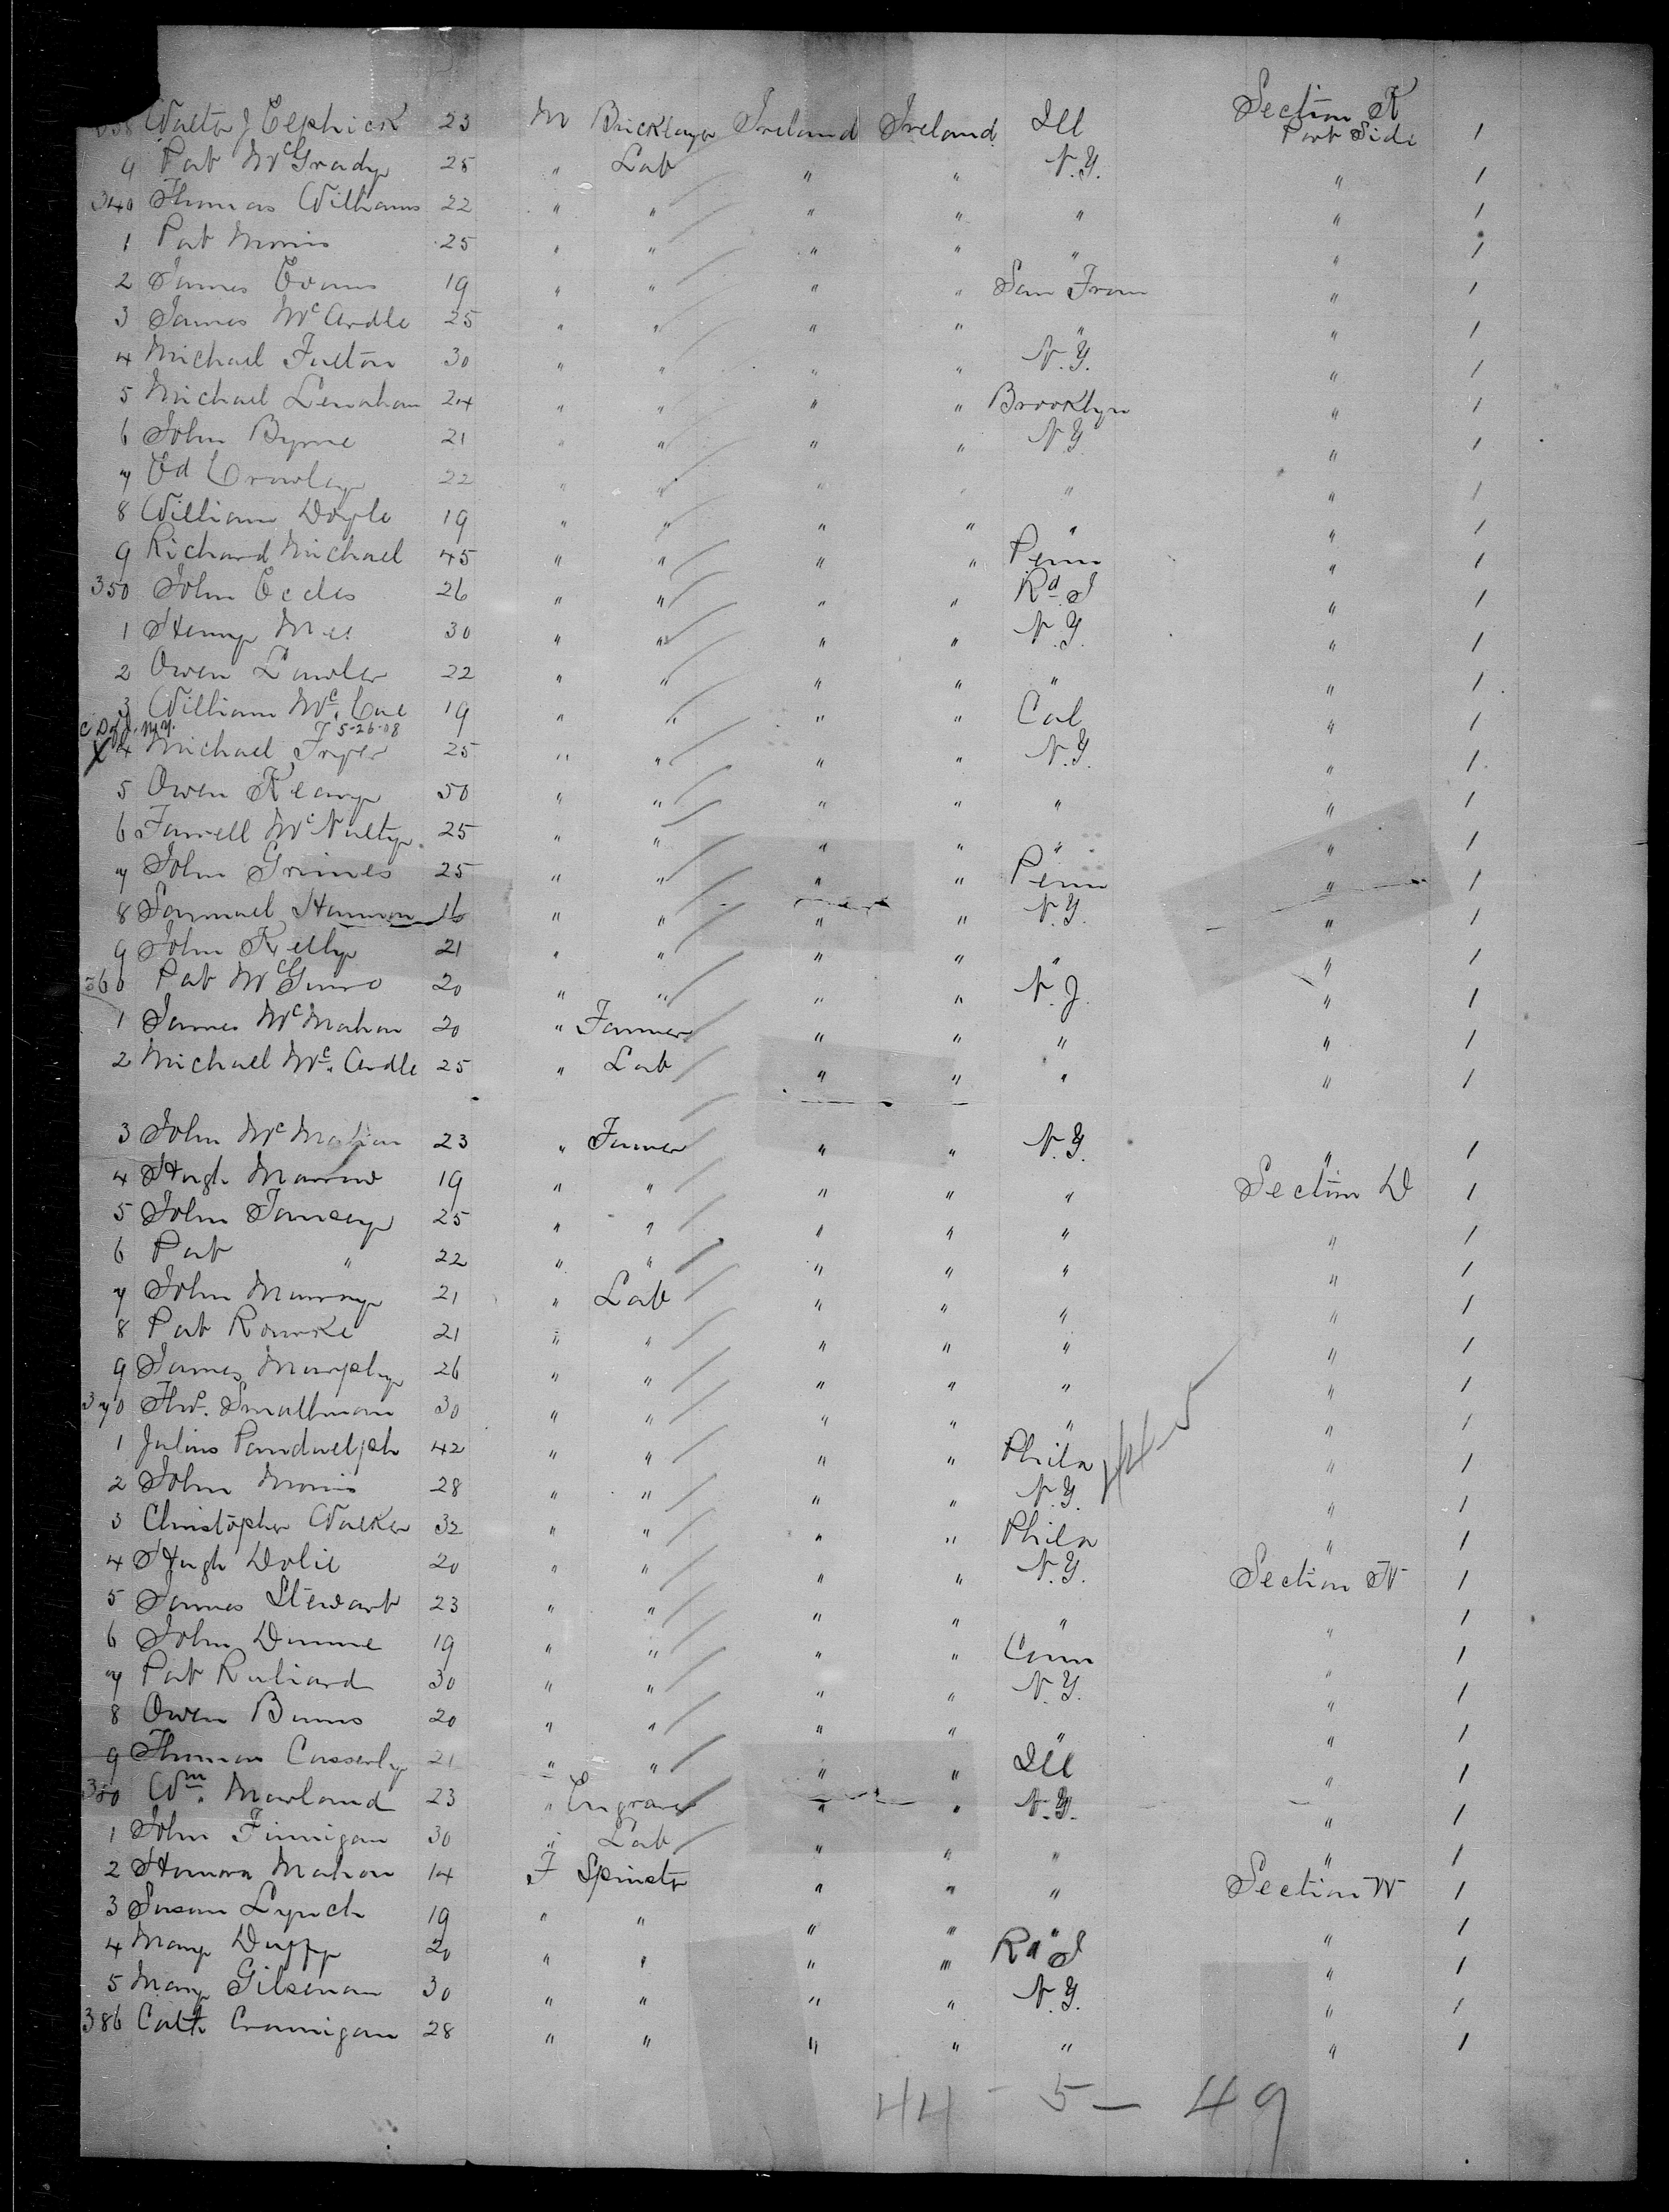 338 Walter J Elphick 23 M Bricklayer Ireland Ireland Ill Section K Port Side 1
9 Pat McGrady 25 " Lab " " N.Y. " 1
340 Thomas Williams 22 " " " " " " 1
1 Pat Morris 25 " " " " " " 1
2 James Evans 19 " " " " San Fran " 1
3 James McArdle 25 " " " " " " 1
4 Michael Fulton 30 " " " " N.Y. " 1
5 Michael Lenahan 24 " " " " Brooklyn " 1
6 John Byrne 21 " " " " N.Y. " 1
7 Ed Crowley 22 " " " " " " 1
8 William Doyle 19 " " " " " " 1
9 Richard Michael 45 " " " " Penn " 1
350 John Eccles 26 " " " " Rd I " 1
1 Henry Mee 30 " " " " N.Y. " 1
2 Owen Lawler 22 " " " " " " 1
3 William Mc. Cue 19 " " " " Cal " 1
5-26-08
4 Michael Fryer 25 " " " " N.Y. " 1
5 Owen Keany 50 " " " " " " 1
6 Farrell McNulty 25 " " " " " " 1
7 John Grimes 25 " " " " Penn " 1
8 Samuel Hannon 16 " " " " N.Y. " 1
9 John Kelly 21 " " " " " " 1
360 Pat McGinn 20 " " " " N.J. " 1
1 James McMahon 20 " Farmer " " " " 1
2 Michael Mc. Ardle 25 " Lab " " " " 1
3 John McMahon 23 " Farmer " " N.Y. " 1
4 Hugh 19 " " " " " Section D 1
5 John Tansey 25 " " " " " " 1
6 Pat " 22 " " " " " " 1
7 John Murray 21 " Lab " " " " 1
8 Pat Rourke 21 " " " " " " 1
9 James Murphy 26 " " " " " " 1
370 Thos. Smallman 30 " " " " " " 1
1 Julius 42 " " " " Phila " 1
2 John Morris 28 " " " " N.Y. " 1
3 Christopher Walker 32 " " " " Phila " 1
4 Hugh Dolie 20 " " " " N.Y. Section W 1
5 James Stewart 23 " " " " " " 1
6 John Dunne 19 " " " " Conn " 1
7 Pat Ruliard 30 " " " " N.Y. " 1
8 Owen Burns 20 " " " " " " 1
9 Thomas Casserly 21 " " " " Ill " 1
380 Wm. Morland 23 " Engraver " " N.Y. " 1
1 John Finnigan 30 " Lab " " " " 1
2 Honora Mahon 14 F Spinster " " " Section W 1
3 Susan Lynch 19 " " " " " " 1
4 Mary Duffy 20 " " " " Rd I " 1
5 Mary Gilsenan 30 " " " " N.Y. " 1
386 Cath Crannigan 28 " " " " " " 1
44 - 5 - 49